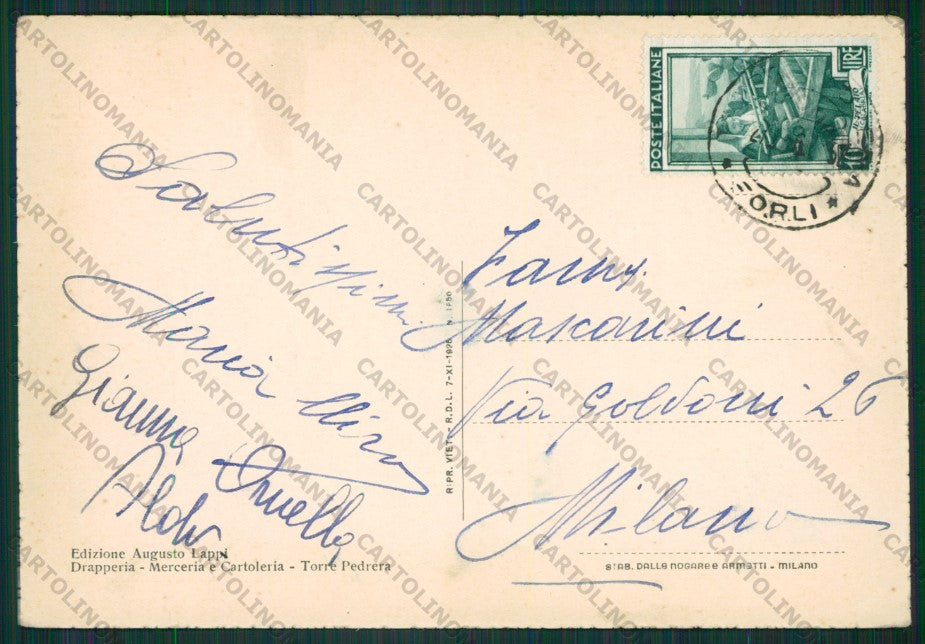 POSTE ITALIANE
LIRE
10
FORLI
Salutissimi
Maria
Gianna
Ornella
Aldo
Fanny
Mascarini
Via Goldoni 26
Milano
RIPR. VIET. R.D.L. 7-XI-1926 N. 1950
Edizione Augusto Lappi
Drapperia - Merceria e Cartoleria - Torre Pedrera
STAB. DALLE NOGARE E ARMETTI - MILANO
CARTOLINOMANIA